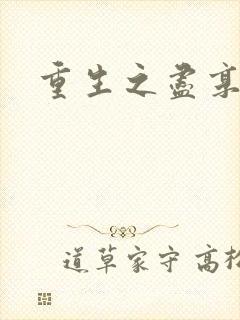 重生之盡
道草家守 高